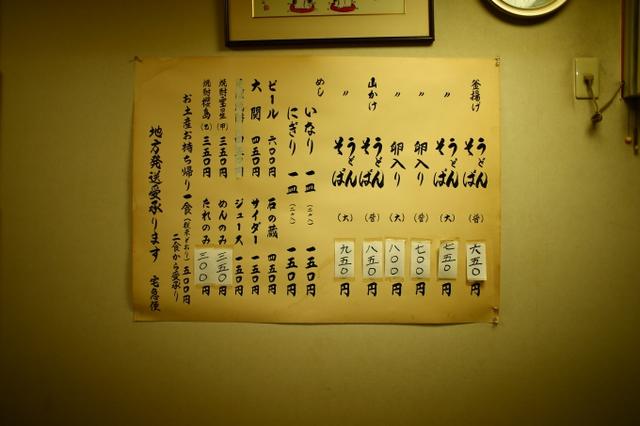 釜揚げ うどん そば (普) 六五〇円
〃 うどん そば (大) 七五〇円
〃 卵入り (普) 七〇〇円
〃 卵入り (大) 八〇〇円
山かけ うどん そば (普) 八五〇円
〃 うどん そば (大) 九五〇円
めし いなり 一皿 一五〇円
にぎり 一皿 一五〇円
ビール 六〇〇円 石の蔵 四五〇円
大関 四五〇円 サイダー 一五〇円
ジュース 一五〇円
焼酎 (甲) 三五〇円 めんのみ 三五〇円
焼酎桜島 (乙) 三五〇円 たれのみ 三〇〇円
お土産お持ち帰り 一食 五〇〇円
二食から受承り
地方発送受承ります 宅急便